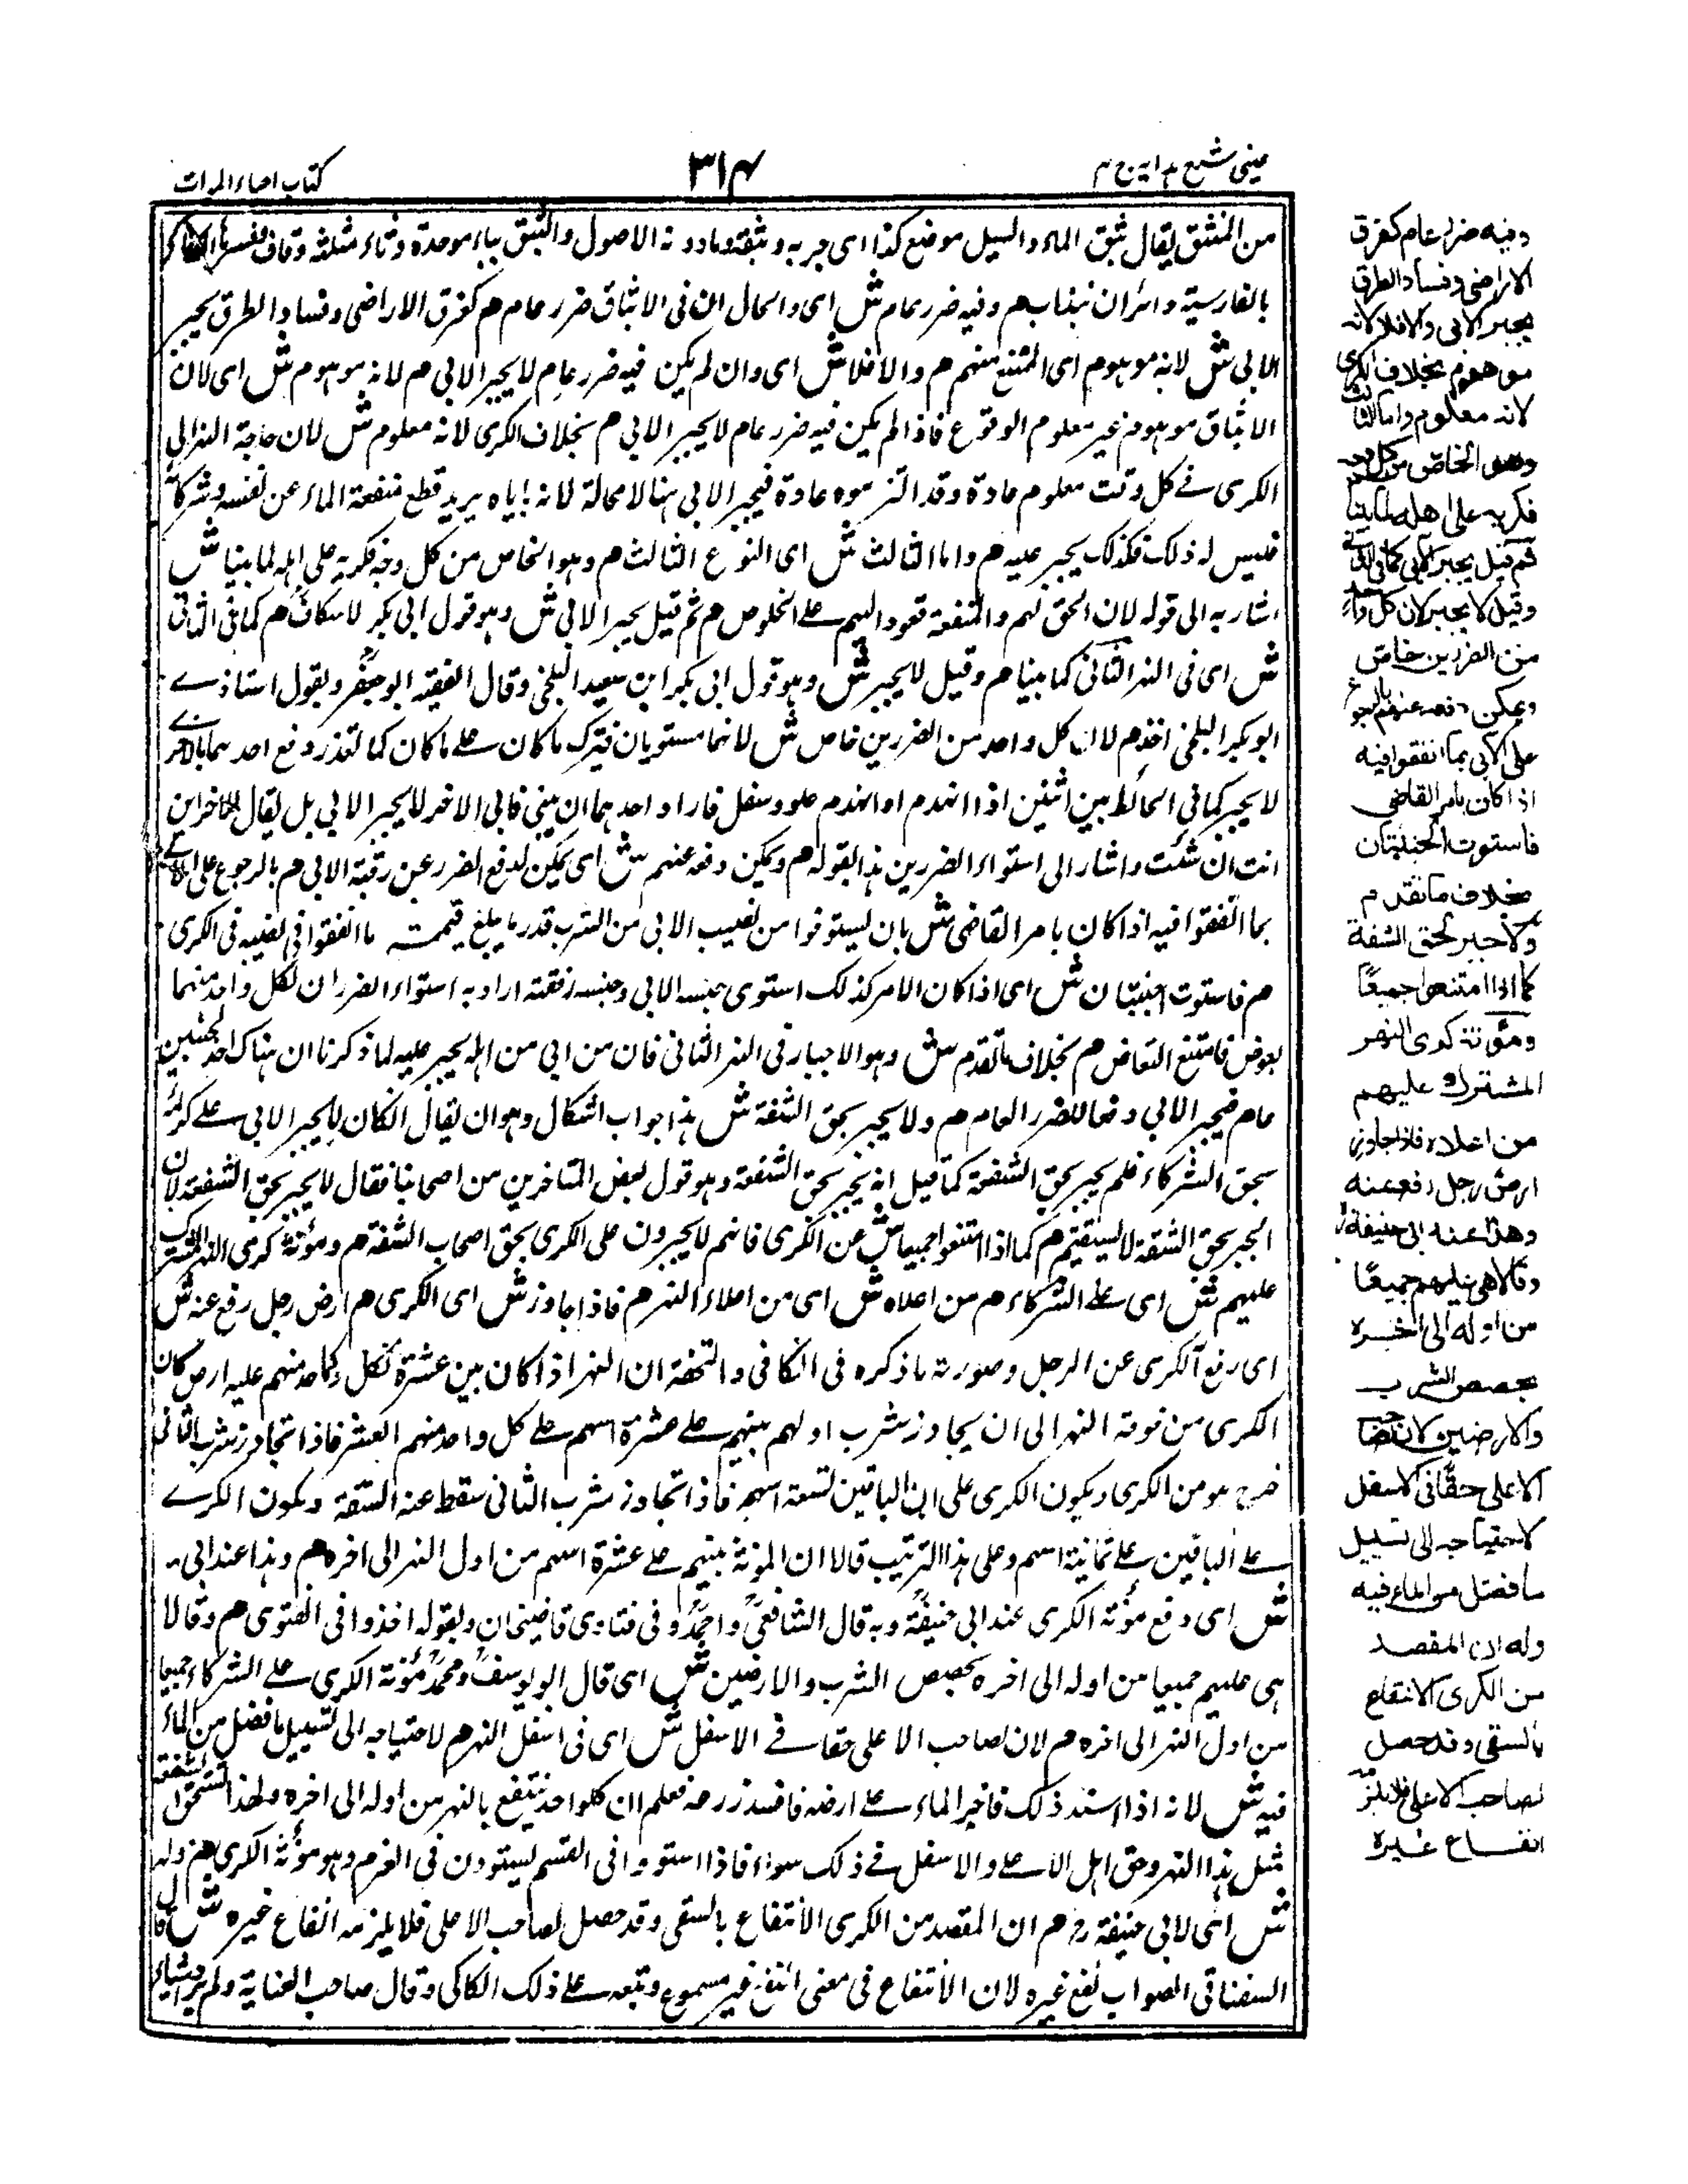 عینی شرح هدایہ ج ۴
۳۱۴
کتاب احیاء الموات
من المنشق یقال بثق الماء والسیل موضع کذا ای خربه وشقه ومادونه الاصول والبثق بباء موحدة وثاء مثلثة وقاف
بالفارسیة هم وفیه ضرر عام ش ای والحال ان فی الانبثاق ضرر عام هم کغرق الاراضی وفساد الطرق یجبر
الابی ش لانه موهوم ای الممتنع منهم هم والا فلا ش ای وان لم یکن فیه ضرر عام لا یجبر الابی هم لانه موهوم ش ای لان
الانبثاق موهوم غیر معلوم الوقوع فاذا لم یکن فیه ضرر عام لا یجبر الابی هم بخلاف الکری لانه معلوم ش لان حاجة النهر الی
الکری فی کل وقت معلوم عادة وقد التزموه عادة فیجبر الابی هنا لا محالة لانه باباه یرید قطع منفعة الماء عن نفسه وشرکائه
فلیس له ذلک فکذلک یجبر علیه هم واما الثالث ش ای النوع الثالث هم وهو الخاص من کل وجه فکریه علی اهله لما بینا ش
اشار به الی قوله لان الحق لهم والمنفعة تعود الیهم علی الخلوص هم ثم قیل یجبر الابی ش وهو قول ابی بکر الاسکاف هم کما فی الثانی
ش ای فی النهر الثانی کما بینا هم وقیل لا یجبر ش وهو قول ابی بکر ابن سعید البلخی وقال الفقیه ابو جعفر وبقول استاذی
ابو بکر البلخی اخذ هم لان کل واحد من الضررین خاص ش لانهما مستویان فیترک ماکان علی ماکان کما تعذر دفع احدهما بالاخر
لا یجبر کما فی الحائط بین اثنین اذا انهدم او انهدم علو وسفل فاراد احدهما ان یبنی فابی الاخر لا یجبر الابی بل یقال للاخر ابن
انت ان شئت واشار الی استواء الضررین بهذا بقوله هم ویمکن دفعه عنهم ش ای یمکن لدفع الضرر عن رقبة الابی هم بالرجوع علی الابی
بما انفقوا فیه اذا کان بامر القاضی ش بان یستوفوا من نصیب الابی من الشرب قدر ما یبلغ قیمته ما انفقوا فی نصیبه فی الکری
هم فاستوت الجنبتان ش ای اذا کان الامر کذلک استوی جنبه الابی وجنبه رفقته اراد به استواء الضرران لکل واحد منهما
بعوض فامتنع التعارض هم بخلاف ما تقدم ش وهو الاجبار فی النهر الثانی فان من ابی من اهله یجبر علیه لما ذکرنا ان هناک احد الجنبین
عام فیجبر الابی دفعا للضرر العام هم ولا یجبر بحق الشفة ش هذا جواب اشکال وهو ان یقال ان کان لا یجبر الابی علی کریه
بحق الشرکاء فلم یجبر بحق الشفة کما قیل انه یجبر بحق الشفة وهو قول بعض المتاخرین من اصحابنا فقال لا یجبر بحق الشفة لان
الجبر بحق الشفة لا یستقیم هم کما اذا امتنعوا جمیعا ش عن الکری فانهم لا یجبرون علی الکری بحق اصحاب الشفة هم ومؤنة کری النهر المشترک
علیهم ش ای علی الشرکاء هم من اعلاه ش ای من اعلاء النهر هم فاذا جاوز ش ای الکری هم ارض رجل رفع عنه ش
ای رفع الکری عن الرجل وصورته ما ذکره فی الکافی والتحفة ان النهر اذا کان بین عشرة لکل واحد منهم علیه ارض کان
الکری من فوهة النهر الی ان یجاوز شرب اولهم بینهم علی عشرة اسهم علی کل واحد منهم العشر فاذا تجاوز شرب الثانی
خرج هو من الکری ویکون الکری علی الباقین تسعة اسهم فاذا تجاوز شرب الثانی سقط عنه الشفة ویکون الکری
علی الباقین علی ثمانیة اسهم وعلی هذا الترتیب قالا ان المؤنة بینهم علی عشرة اسهم من اول النهر الی اخره هم وهذا عند ابی
ش ای دفع مؤنة الکری عند ابی حنیفة وبه قال الشافعی واحمد وفی فتاوی قاضیخان وبقوله اخذوا فی الفتوی هم وقالا
هی علیهم جمیعا من اوله الی اخره بحصص الشرب والارضین ش ای قال ابو یوسف ومحمد مؤنة الکری علی الشرکاء جمیعا
من اول النهر الی اخره هم لان لصاحب الاعلی حقا فی الاسفل ش ای فی اسفل النهر هم لاحتیاجه الی تسییل ما فضل من الماء
فیه ش لانه اذا استد ذلک فاخر الماء علی ارضه فافسد زرعه فعلم ان کل واحد ینتفع بالنهر من اوله الی اخره ولهذا یستحق الشفعة
مثل هذا النهر وحق اهل الاعلی والاسفل فی ذلک سواء فاذا استووا فی القسم یستوون فی الغرم وهو مؤنة الکری هم وله
ش ای لابی حنیفة رح هم ان المقصد من الکری الانتفاع بالسقی وقد حصل لصاحب الاعلی فلا یلزمه انفاع غیره ش قال
السغناقی الصواب نفع غیره لان الانتفاع فی معنی النفع غیر مسموع وتبعه علی ذلک الکاکی وقال صاحب العنایة ولم
وفیه ضرر عام کغرق
الاراضی وفساد الطرق
یجبر الابی والا فلا لانه
موهوم بخلاف الکری
لانه معلوم واما الثالث
وهو الخاص من کل وجه
فکریه علی اهله لما بینا
ثم قیل یجبر الآبی کما فی الثانی
وقیل لا یجبر لان کل واحد
من الضررین خاص
ویمکن دفعه عنهم بالرجوع
علی الآبی بما انفقوا فیه
اذا کان بامر القاضی
فاستوت الجنبتان
بخلاف ما تقدم
ولا جبر لحق الشفة
کما اذا امتنعوا جمیعًا
ومؤنة کری النهر
المشترک علیهم
من اعلاه فاذا جاوز
ارض رجل رفع عنه
وهذا عند ابی حنیفة
وقالا هی علیهم جمیعًا
من اوله الی اخره
بحصص الشرب
والارضین لان لصاحب
الاعلی حقًا فی الاسفل
لاحتیاجه الی تسییل
ما فضل من الماء فیه
وله ان المقصد
من الکری الانتفاع
بالسقی وقد حصل
لصاحب الاعلی فلا یلزمه
انفاع غیره